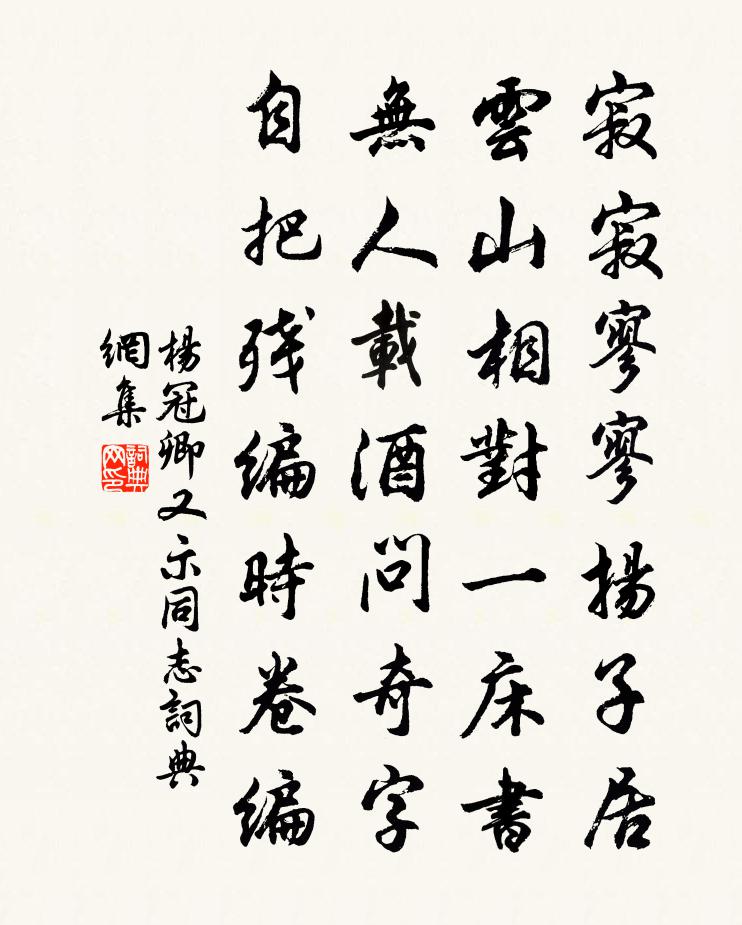 寂寂寥寥揚子居
雲山相對一床書
無人載酒問奇字
自把残编時卷编
楊冠卿又示同志詞典
網集
詞典
网印